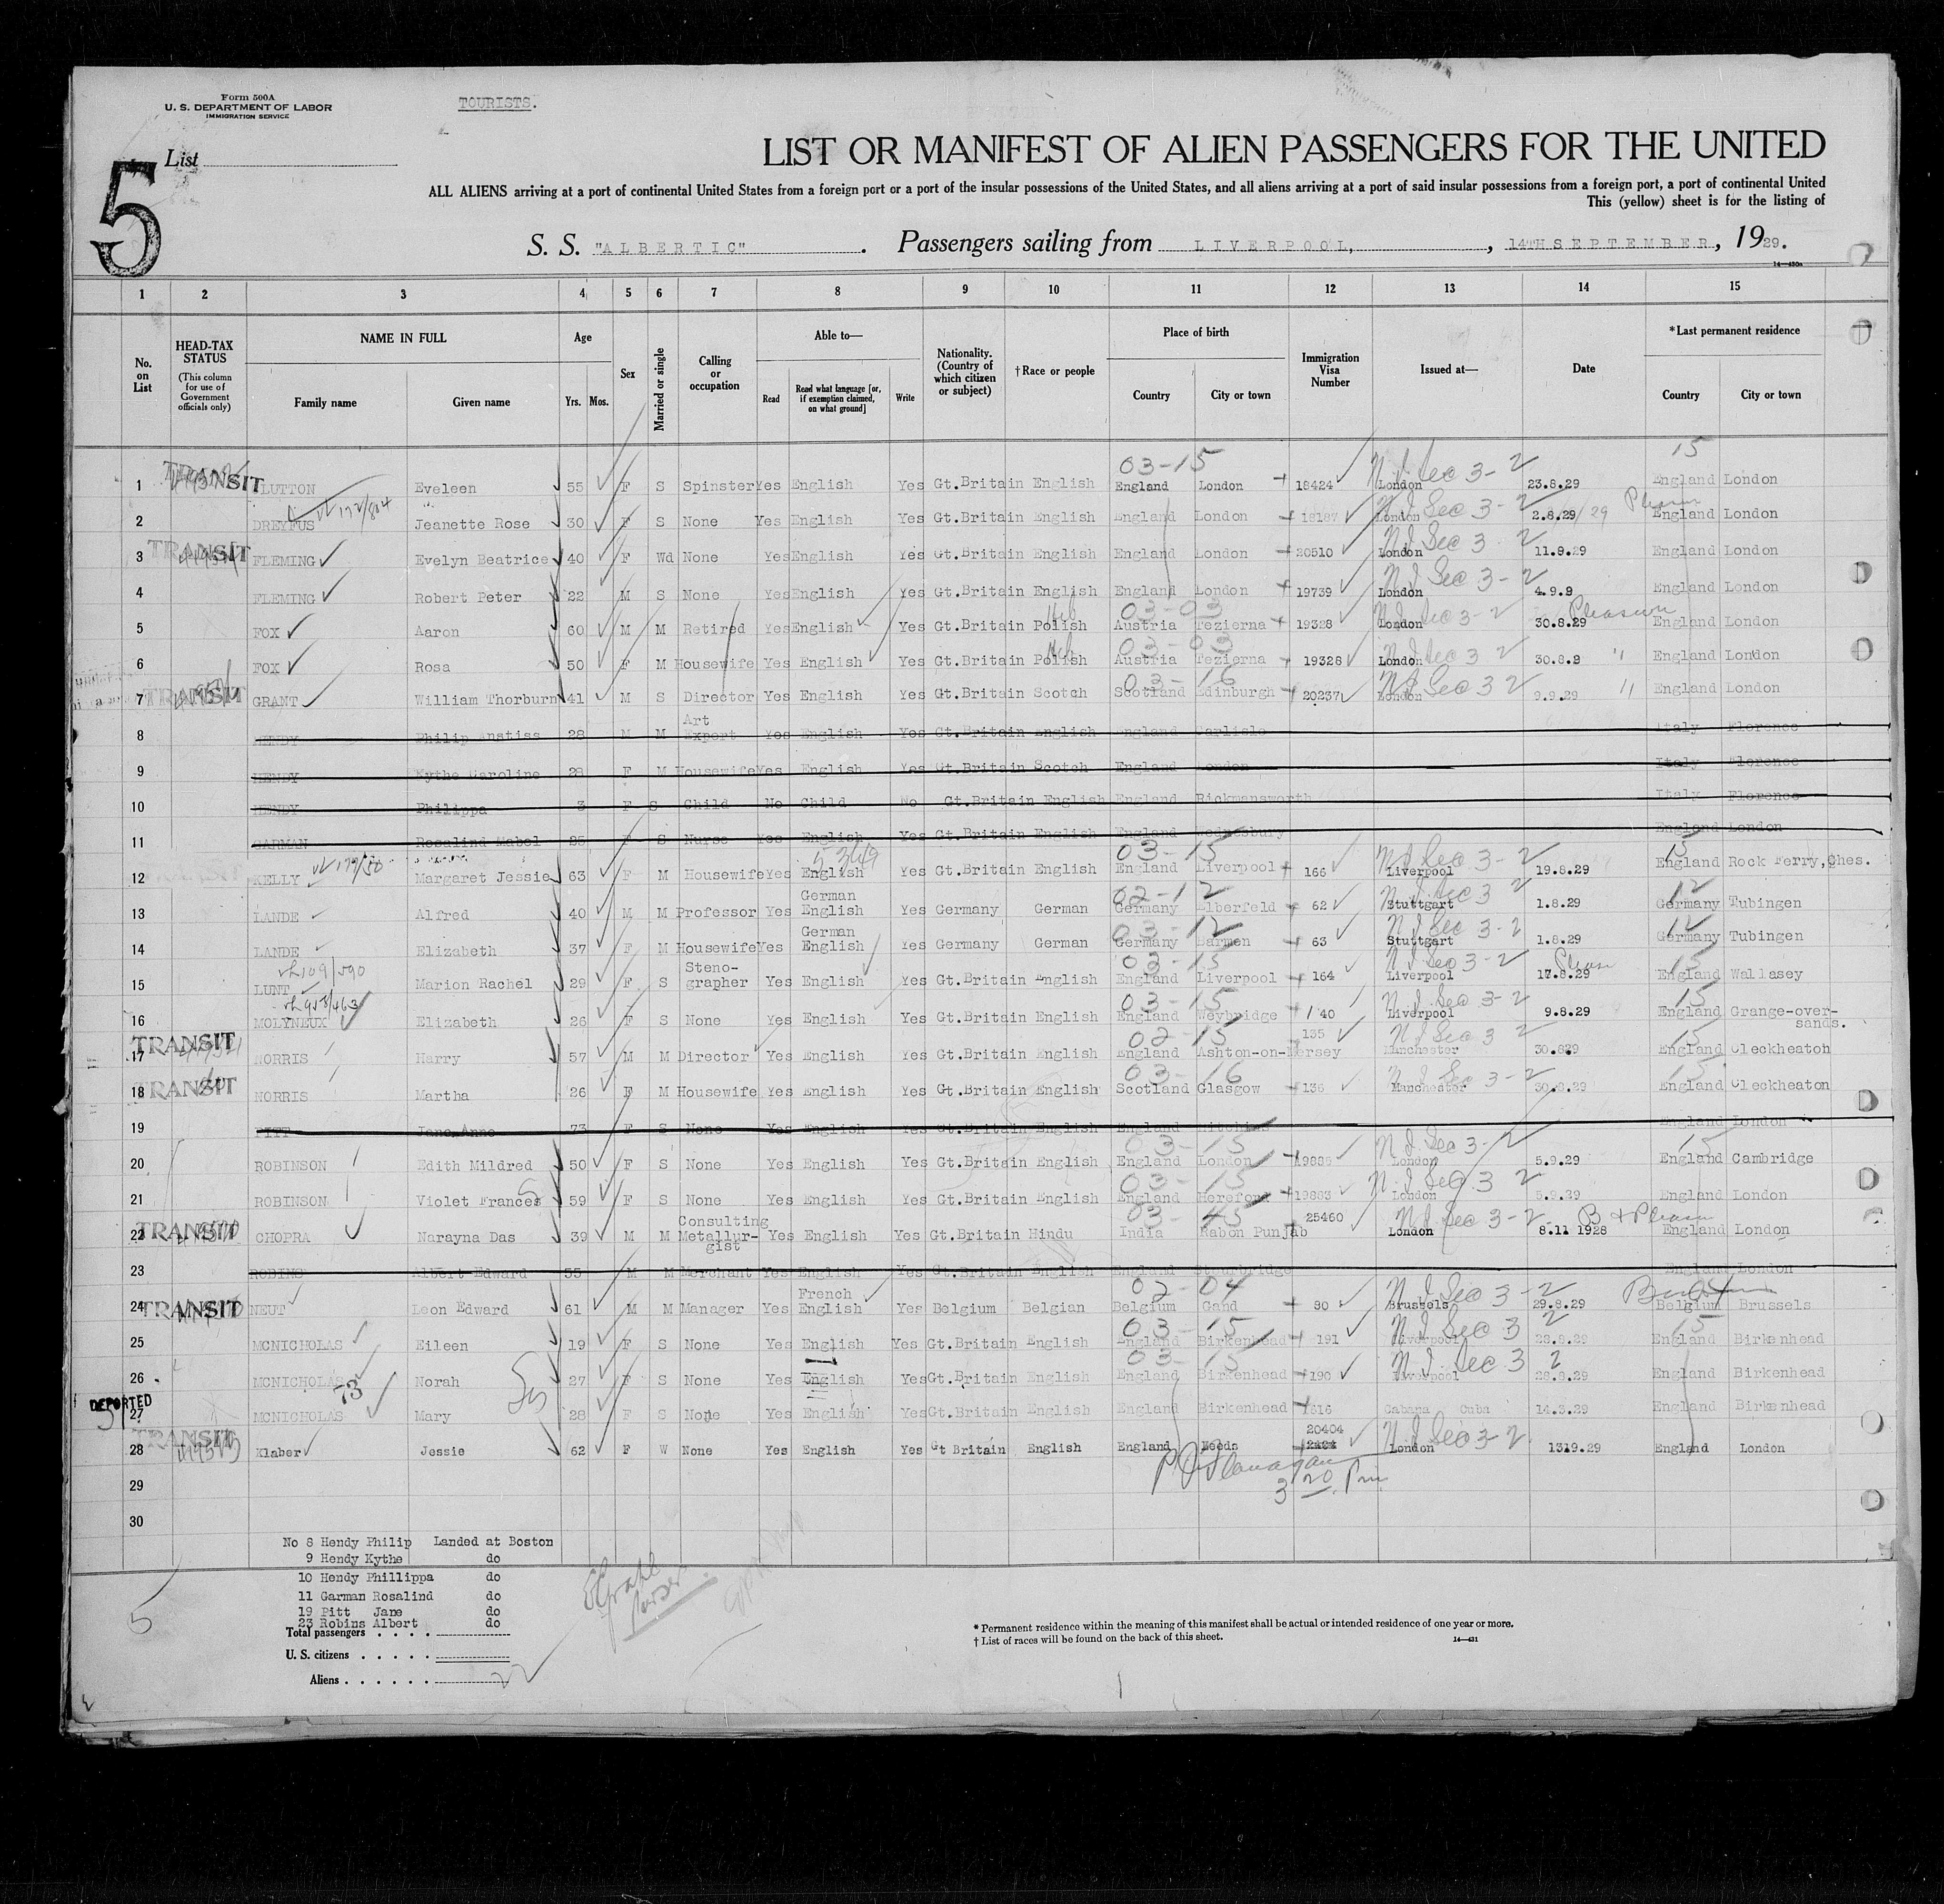 Form 500A
U. S. DEPARTMENT OF LABOR
IMMIGRATION SERVICE
TOURISTS.
5
List
LIST OR MANIFEST OF ALIEN PASSENGERS FOR THE UNITED
ALL ALIENS arriving at a port of continental United States from a foreign port or a port of the insular possessions of the United States, and all aliens arriving at a port of said insular possessions from a foreign port, a port of continental United
This (yellow) sheet is for the listing of
S. S. "ALBERTIC". Passengers sailing from LIVERPOOL, , 14TH SEPTEMBER, 1929.
14—430a
1 2 3 4 5 6 7 8 9 10 11 12 13 14 15
No. on List
HEAD-TAX STATUS (This column for use of Government officials only)
NAME IN FULL Family name Given name
Age Yrs. Mos.
Sex
Married or single
Calling or occupation
Able to— Read Read what language [or, if exemption claimed, on what ground] Write
Nationality. (Country of which citizen or subject)
† Race or people
Place of birth Country City or town
Immigration Visa Number
Issued at—
Date
* Last permanent residence Country City or town
1 TRANSIT CLUTTON Eveleen 55 F S Spinster Yes English Yes Gt.Britain English 03-15 England London 18424 London N I Sec 3-2 23.8.29 15 England London
2 DREYFUS Jeanette Rose 30 F S None Yes English Yes Gt.Britain English England London London N I Sec 3-2 2.8.29 England London
3 TRANSIT FLEMING Evelyn Beatrice 40 F Wd None Yes English Yes Gt.Britain English England London 20510 London N I Sec 3-2 11.9.29 England London
4 FLEMING Robert Peter 22 M S None Yes English Yes Gt.Britain English England London 19739 London N I Sec 3-2 4.9.9 England London
5 FOX Aaron 60 M M Retired Yes English Yes Gt.Britain Polish Heb 03-03 Austria Tezierna 19328 London N I Sec 3-2 30.8.29 Pleasure England London
6 FOX Rosa 50 F M Housewife Yes English Yes Gt.Britain Polish Heb 03-03 Austria Tezierna 19328 London N I Sec 3 2 30.8.9 " England London
7 TRANSIT GRANT William Thorburn 41 M S Director Yes English Yes Gt.Britain Scotch 03-16 Scotland Edinburgh 20237 London N I Sec 3 2 9.9.29 " England London
8 HENDY Philip Anstiss 28 M M Art Expert Yes English Yes Gt.Britain English England Carlisle Italy Florence
9 HENDY Kythe Caroline 28 F M Housewife Yes English Yes Gt.Britain Scotch England London Italy Florence
10 HENDY Philippa 3 F S Child No Child No Gt.Britain English England Rickmansworth Italy Florence
11 GARMAN Rosalind Mabel 25 F S Nurse Yes English Yes Gt.Britain English England Wednesbury England London
12 KELLY Margaret Jessie 63 F M Housewife Yes English Yes Gt.Britain English 03-15 England Liverpool 166 Liverpool N I Sec 3-2 19.8.29 15 England Rock Ferry, Ches.
13 LANDE Alfred 40 M M Professor Yes German English Yes Germany German 02-12 Germany Elberfeld 62 Stuttgart N I Sec 3 2 1.8.29 12 Germany Tubingen
14 LANDE Elizabeth 37 F M Housewife Yes German English Yes Germany German 03-12 Germany Barmen 63 Stuttgart N I Sec 3-2 1.8.29 12 Germany Tubingen
15 LUNT Marion Rachel 29 F S Steno- grapher Yes English Yes Gt.Britain English 02-15 England Liverpool 164 Liverpool N I Sec 3-2 17.8.29 15 England Wallasey
16 MOLYNEUX Elizabeth 26 F S None Yes English Yes Gt.Britain English 03-15 England Weybridge 140 Liverpool N I Sec 3-2 9.8.29 15 England Grange-over-sands.
17 TRANSIT NORRIS Harry 57 M M Director Yes English Yes Gt.Britain English 02-15 England Ashton-on-Mersey 135 Manchester N I Sec 3 2 30.829 15 England Cleckheaton
18 TRANSIT NORRIS Martha 26 F M Housewife Yes English Yes Gt.Britain English 03-16 Scotland Glasgow 136 Manchester N I Sec 3-2 30.8.29 15 England Cleckheaton
19 PITT Jane Anne 73 F S None Yes English Yes Gt.Britain English England Hitchin England London
20 ROBINSON Edith Mildred 50 F S None Yes English Yes Gt.Britain English 03-15 England London 19885 London N I Sec 3-2 5.9.29 15 England Cambridge
21 ROBINSON Violet Frances 59 F S None Yes English Yes Gt.Britain English 03-15 England Hereford 19883 London N I Sec 3 2 5.9.29 England London
22 TRANSIT CHOPRA Narayna Das 39 M M Consulting Metallur- gist Yes English Yes Gt.Britain Hindu 03-45 India Rabon Punjab 25460 London N I Sec 3-2 8.11 1928 B & Pleasure England London
23 ROBINS Albert Edward 55 M M Merchant Yes English Yes Gt.Britain English England Stourbridge England London
24 TRANSIT NEUT Leon Edward 61 M M Manager Yes French English Yes Belgium Belgian 02-04 Belgium Gand 80 Brussels N I Sec 3-2 29.8.29 04 Belgium Brussels
25 MCNICHOLAS Eileen 19 F S None Yes English Yes Gt.Britain English 03-15 England Birkenhead 191 Liverpool N I Sec 3 2 28.8.29 15 England Birkenhead
26 MCNICHOLAS Norah 27 F S None Yes English Yes Gt.Britain English 03-15 England Birkenhead 190 Liverpool N I Sec 3 2 28.8.29 England Birkenhead
DEPORTED
27 MCNICHOLAS 73 Mary 28 F S None Yes English Yes Gt.Britain English England Birkenhead 1616 Cabana Cuba 14.3.29 England Birkenhead
28 TRANSIT Klaber Jessie 62 F W None Yes English Yes Gt Britain English England Leeds 20404 London N I Sec 3-2 1319.29 England London
P J Flanagan
3 20 Pm
29
30
No 8 Hendy Philip Landed at Boston
9 Hendy Kythe do
10 Hendy Phillippa do
11 Garman Rosalind do
19 Pitt Jane do
23 Robins Albert do
5
Total passengers
U. S. citizens
Aliens 22
* Permanent residence within the meaning of this manifest shall be actual or intended residence of one year or more.
† List of races will be found on the back of this sheet.
14—431